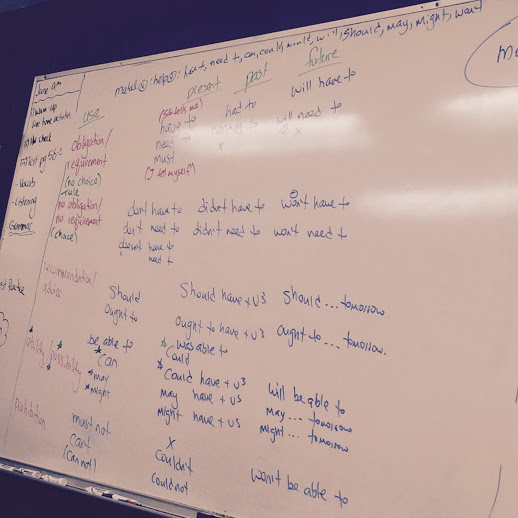 June 9th
modal ⓥ: help ⓥ: have to, need to, can, could, would, will, should, may, might, want
Warm-up
free time activities
HW check
Text pg 150-1
- Vocab
- Listening
Grammar
use
present
past
future
obligation/
requirement
(no choice)
- rule
(Sb tells me)
have to
had to
will have to
need to
needed to
will need to
must
x
x
(I tell myself)
no obligation/
no requirement
(choice)
don't have to
didn't have to
won't have to
don't need to
didn't need to
won't need to
doesn't have to
need to
recommendation/
advice
should
should have + V3
should... tomorrow
ought to
ought to have + V3
ought to... tomorrow.
ability/possibility
be able to
was able to
can
could
may
could have + V3
will be able to
might
may have + V3
may... tomorrow
might have + V3
might... tomorrow
prohibition
must not
x
can't
couldn't
won't be able to
(cannot)
could not